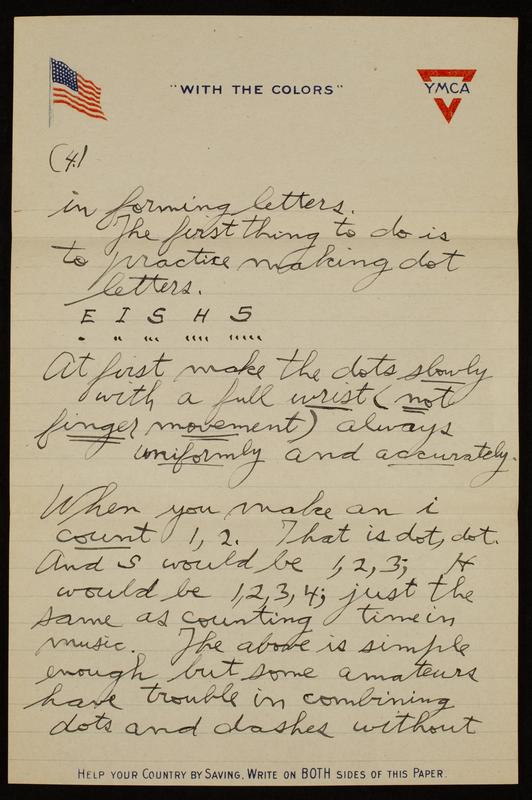 "WITH THE COLORS"
YMCA
(4.)
in forming letters.
The first thing to do is
to practice making dot
letters.
E I S H 5
. .. ... .... .....
At first make the dots slowly
with a full wrist (not
finger movement) always
uniformly and accurately.
When you make an i
count 1, 2. That is dot, dot.
And S would be 1, 2, 3; H
would be 1, 2, 3, 4; just the
same as counting time in
music. The above is simple
enough but some amateurs
have trouble in combining
dots and dashes without
HELP YOUR COUNTRY BY SAVING. WRITE ON BOTH SIDES OF THIS PAPER.